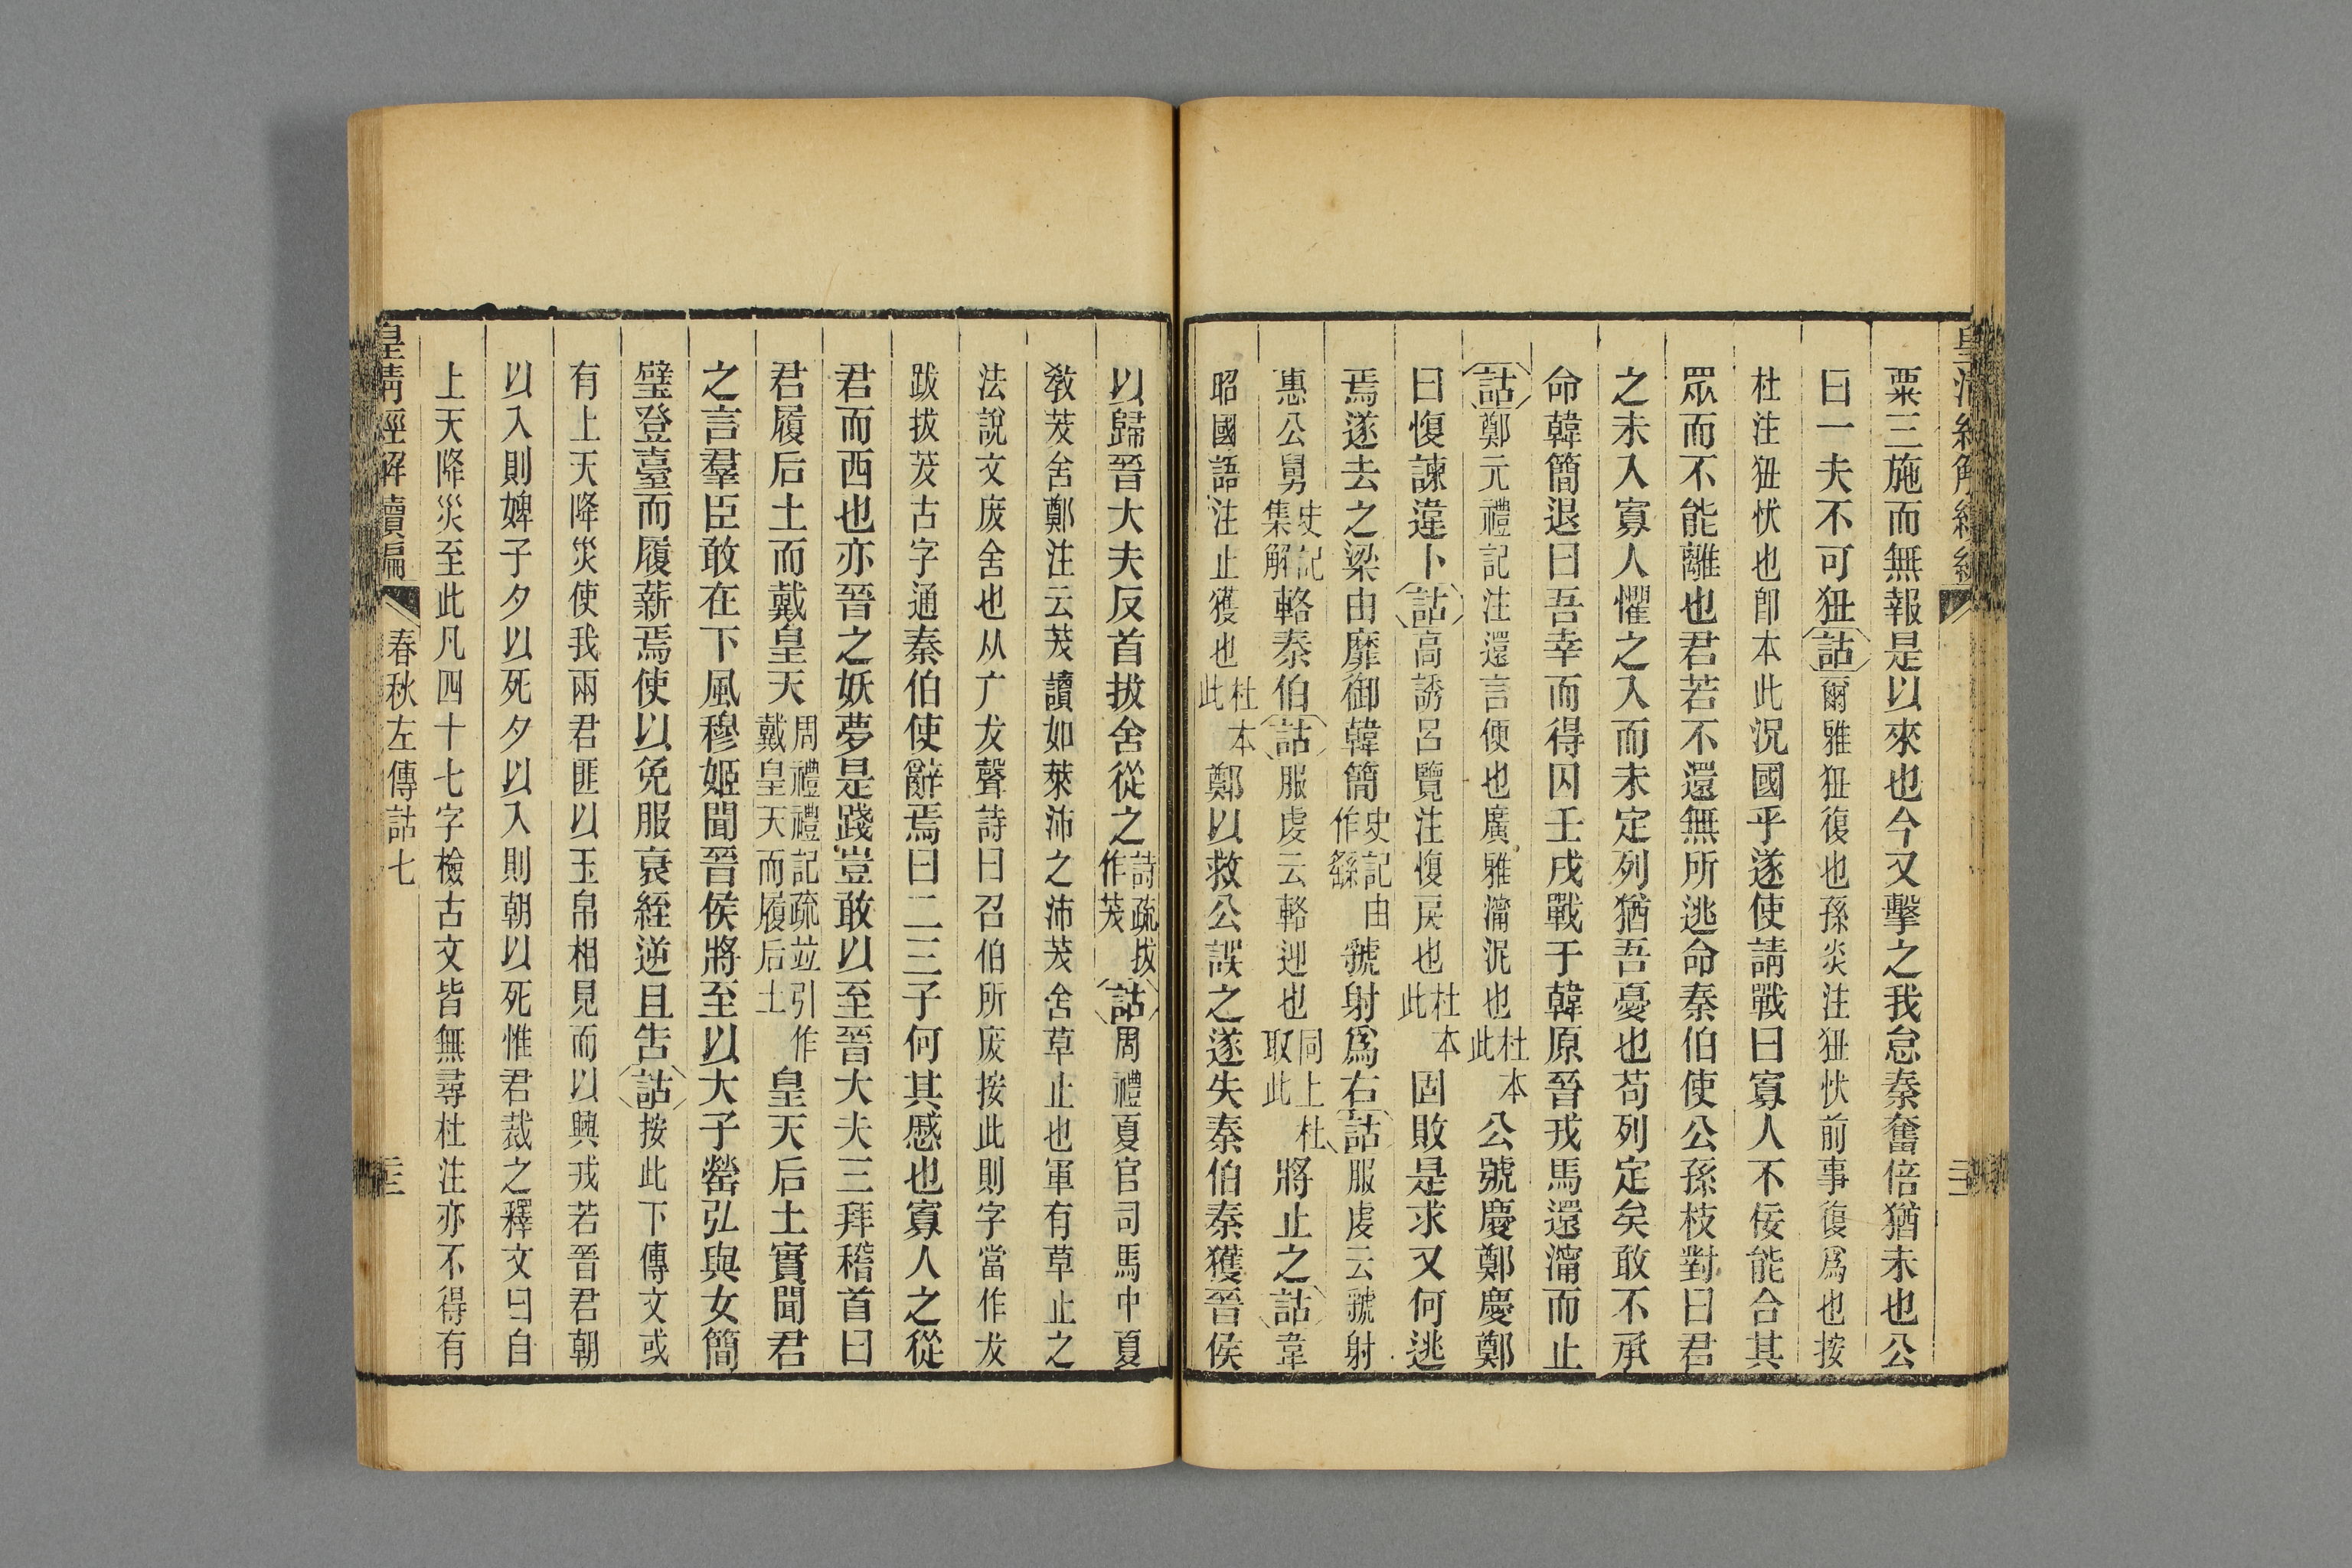 粟三施而無報是以來也今又擊之我怠秦奮倍猶未也公
曰一夫不可狃詁爾雅狃復也孫炎注狃忕前事復爲也按
杜注狃忕也卽本此況國乎遂使請戰曰寡人不佞能合其
眾而不能離也君若不還無所逃命秦伯使公孫枝對曰君
之未入寡人懼之入而未定列猶吾憂也苟列定矣敢不承
命韓簡退曰吾幸而得囚壬戌戰于韓原晉戎馬還濘而止
詁鄭元禮記注還言便也廣雅濘泥也杜本此公號慶鄭慶鄭
曰愎諫違卜詁高誘呂覽注愎戾也杜本此固敗是求又何逃
焉遂去之梁由靡御韓簡史記由作繇虢射爲右詁服虔云虢射
惠公舅史記集解輅秦伯詁服虔云輅迎也同上杜取此將止之詁韋
昭國語注止獲也杜本此鄭以救公誤之遂失秦伯秦獲晉侯
以歸晉大夫反首拔舍從之詩疏拔作茇詁周禮夏官司馬中夏
教茇舍鄭注云茇讀如萊沛之沛茇舍草止也軍有草止之
法說文废舍也从广犮聲詩曰召伯所废按此則字當作犮
跋拔茇古字通秦伯使辭焉曰二三子何其慼也寡人之從
君而西也亦晉之妖夢是踐豈敢以至晉大夫三拜稽首曰
君履后土而戴皇天周禮禮記疏竝引作戴皇天而履后土皇天后土實聞君
之言羣臣敢在下風穆姬聞晉侯將至以大子罃弘與女簡
璧登臺而履薪焉使以免服衰絰逆且告詁按此下傳文或
有上天降災使我兩君匪以玉帛相見而以興戎若晉君朝
以入則婢子夕以死夕以入則朝以死惟君裁之釋文曰自
上天降災至此凡四十七字檢古文皆無尋杜注亦不得有
皇清經解續編 春秋左傳詁七